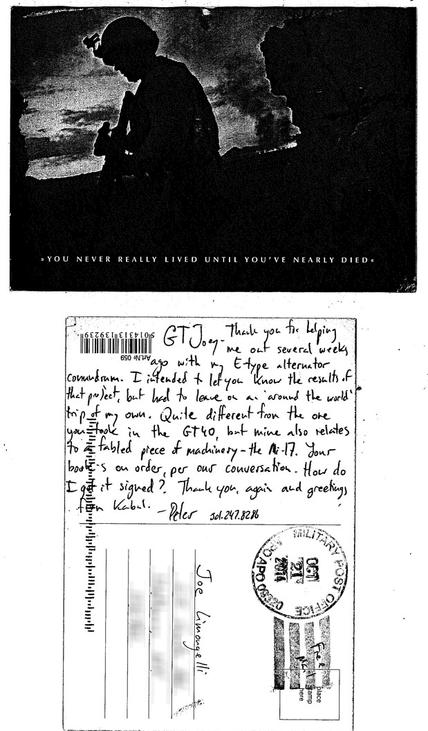 »YOU NEVER REALLY LIVED UNTIL YOU'VE NEARLY DIED«
GT Joey- Thank you for helping
me out several weeks
ago with my E-type alternator
conundrum. I intended to let you know the results of
that project, but had to leave on an 'around the world'
trip of my own. Quite different from the one
you took in the GT40, but mine also relates
to a fabled piece of machinery - the Mi-17. Your
book's on order, per our conversation. How do
I get it signed? Thank you, again and greetings
from Kabul. -Peter
Art.Nr 059
Joe Limongelli
MILITARY POST OFFICE
OCT
21
2014
APO
Free
Mail
place
stamp
here